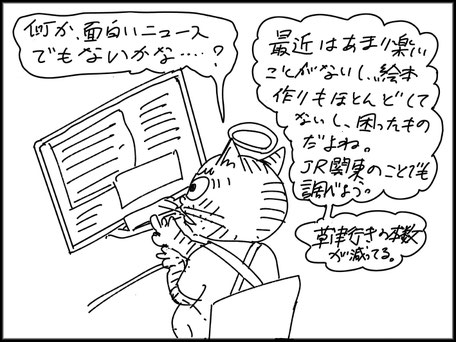 何か、面白いニュース
でもないかな‥‥?
最近はあまり楽しい
ことがないし、絵本
作りもほとんどして
ないし、困ったもの
だよね。
JR関東のことでも
調べよう。
草津行きの本数
が減ってる。